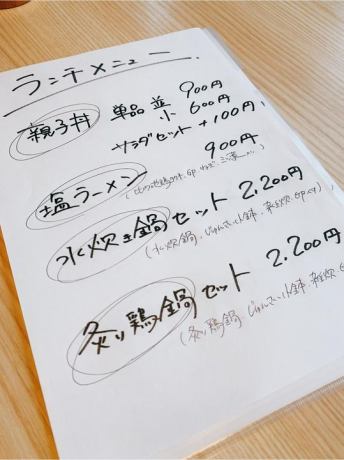 ランチメニュー
親子丼 単品 並 900円
小 600円
サラダセット +100円
塩ラーメン 900円
水炊き鍋セット 2,200円
(水炊鍋、
炙り鶏鍋セット 2,200円
(炙り鶏鍋、